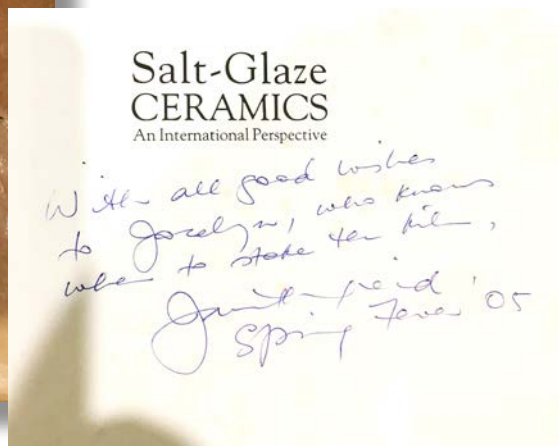 Salt-Glaze
CERAMICS
An International Perspective
With all good wishes
to Jocelyn, who knows
when to stoke the kiln,
'05
Spring Fever